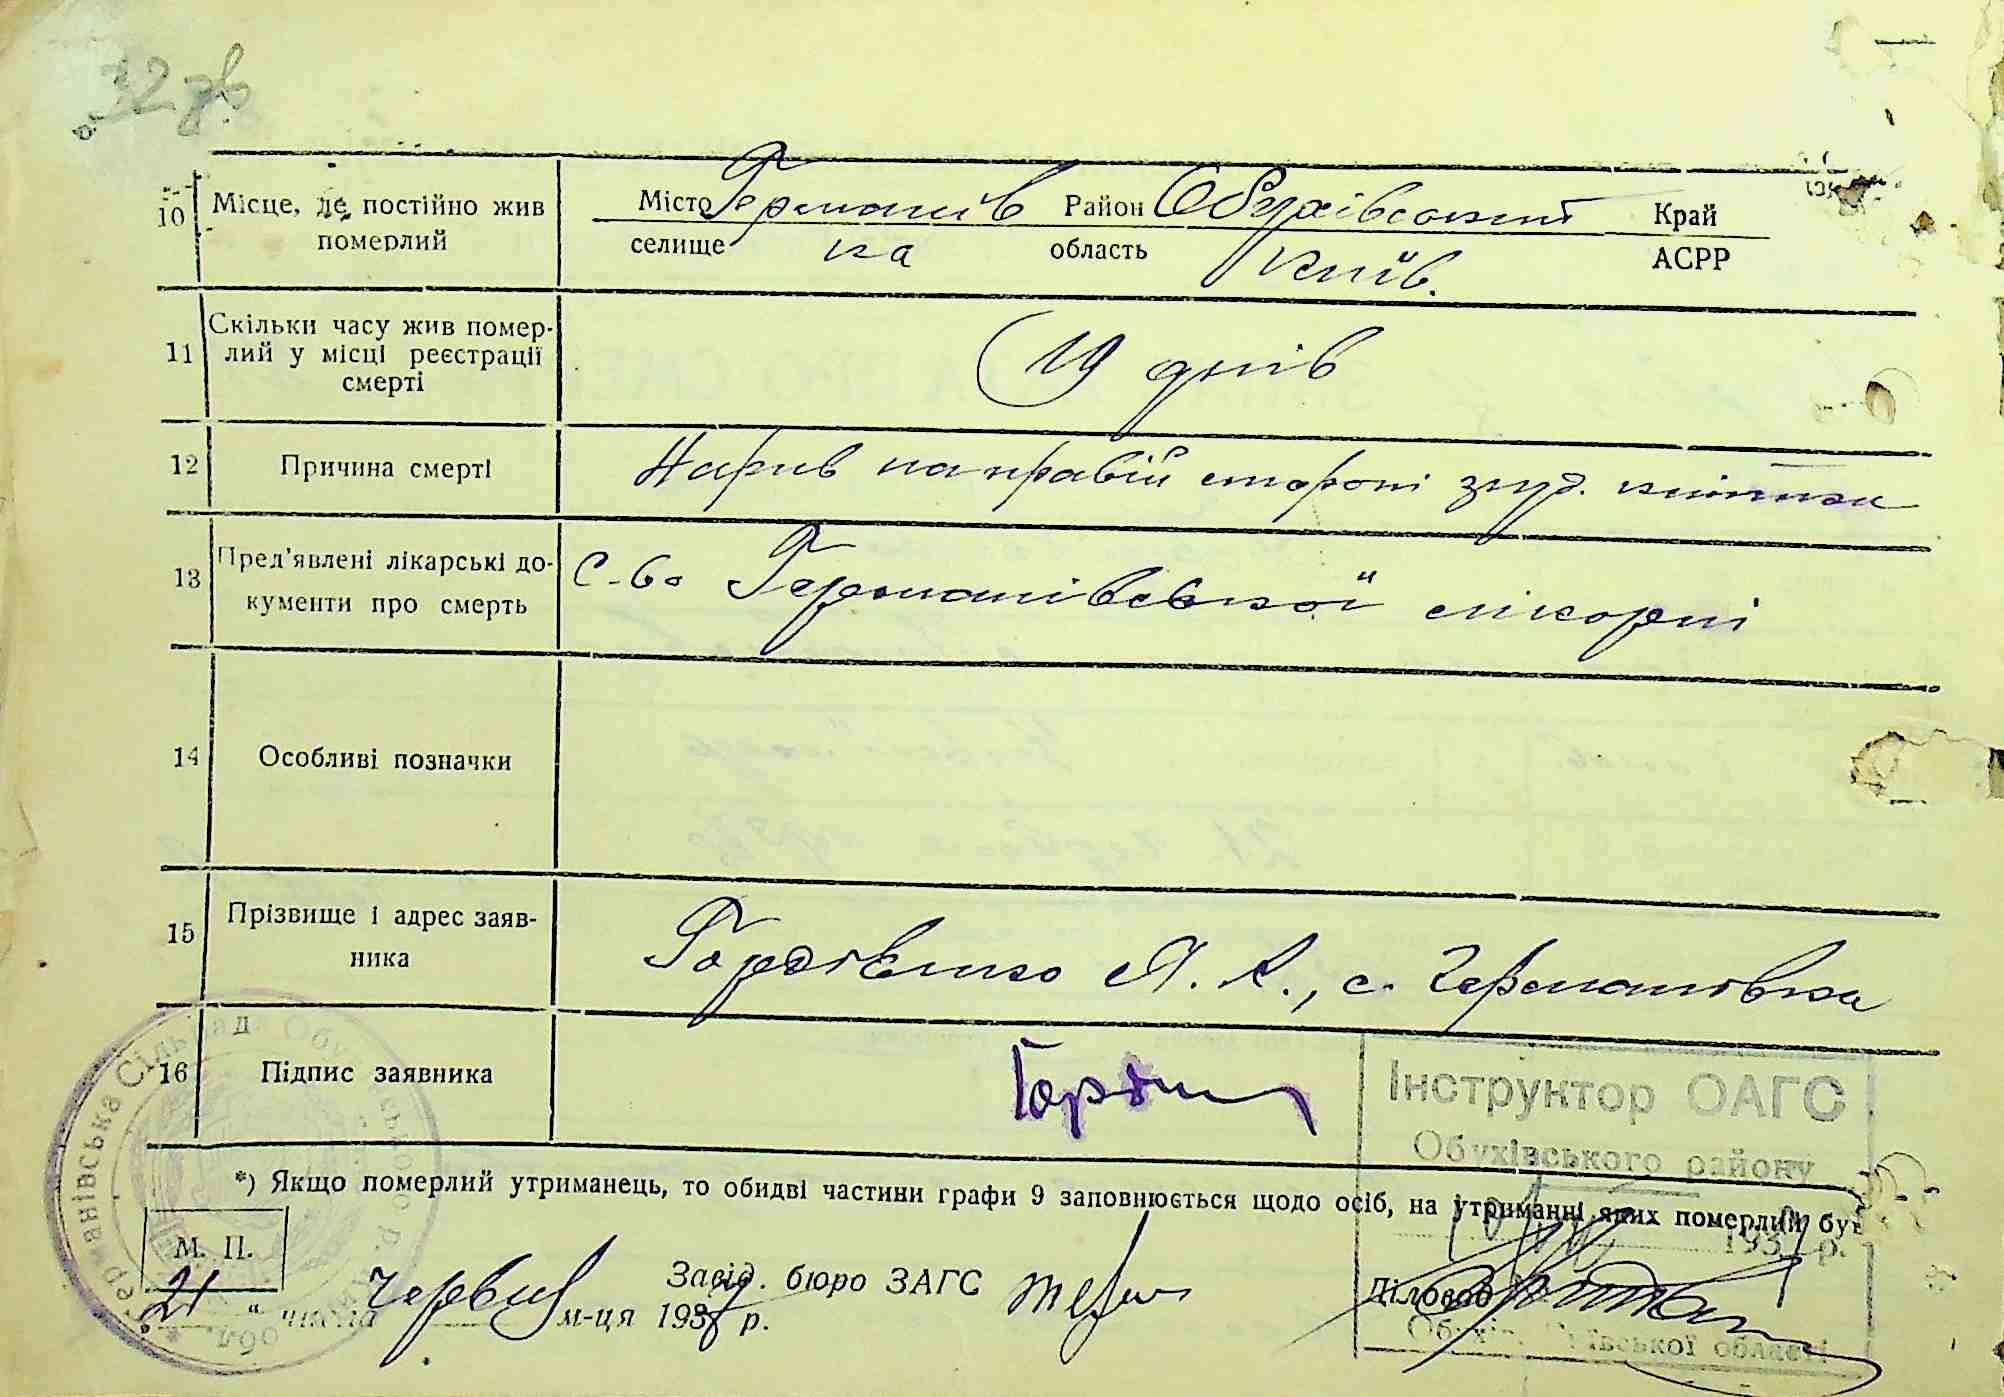 32 зв
10 Місце, де постійно жив померлий
Місто Германів Район Обухівський Край
селище ка область Київ. АСРР
11 Скільки часу жив помер-
лий у місці реєстрації
смерті
19 днів
12 Причина смерті
Нарив на правій стороні груд. клітки
13 Пред'явлені лікарські до-
кументи про смерть
С-во Германівської лікарні
14 Особливі позначки
15 Прізвище і адрес заяв-
ника
Гордієнко Л. А., с. Германовка
16 Підпис заявника
Інструктор ОАГС
Обухівського району
193 р.
*) Якщо померлий утриманець, то обидві частини графи 9 заповнюється щодо осіб, на утриманні яких померлий був
М. П.
Завід. бюро ЗАГС
Діловод
21 " числа червня м-ця 1937 р.
Київської області
Германівська Сільрада Обухівського р. Київ. обл.